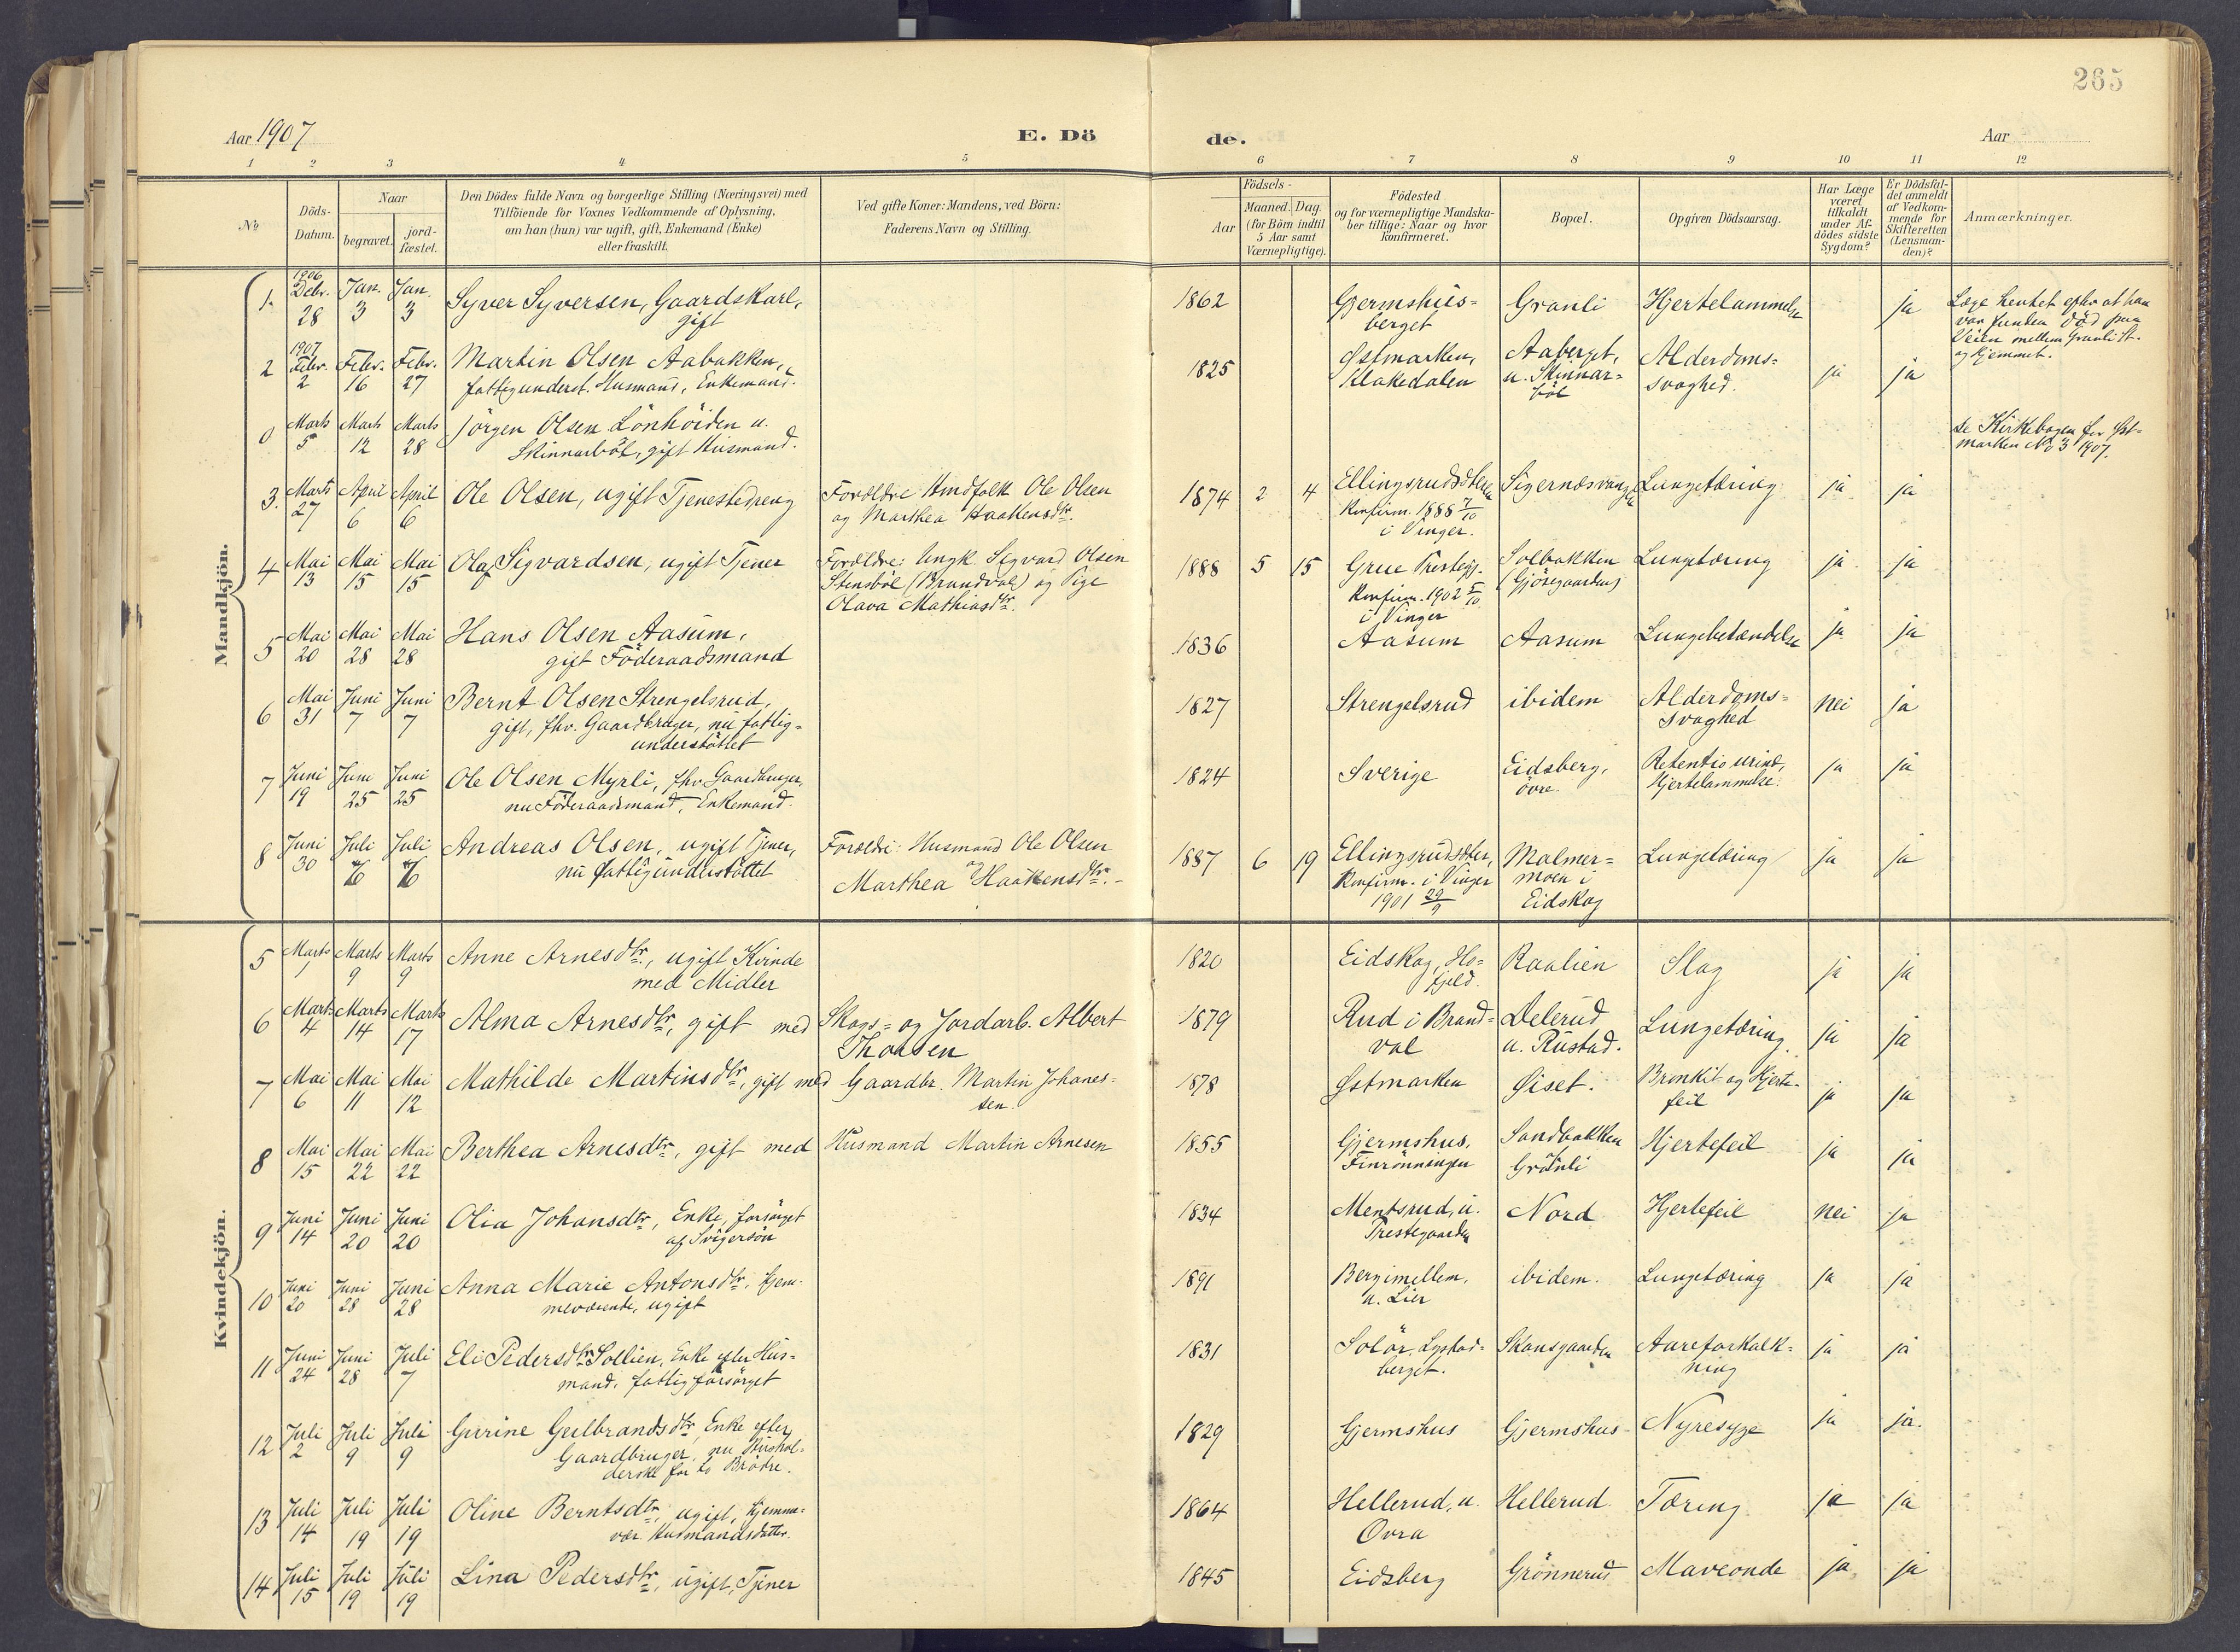 265
Aar 1907
E. Dö
de.
Aar
1 2 3 4 5 6 7 8 9 10 11 12
No
Döds-
Datum.
Naar
begravet.
jord-
fæstet.
Den Dödes fulde Navn og borgerlige Stilling (Næringsvei) med
Tilföiende for Voxnes Vedkommende af Oplysning,
om han (hun) var ugift, gift, Enkemand (Enke)
eller fraskilt.
Ved gifte Koner: Mandens, ved Börn:
Faderens Navn og Stilling.
Födsels-
Aar
Maaned. Dag.
(for Börn indtil
5 Aar samt
Værnepligtige).
Födested
og for værnepligtige Mandska-
ber tillige: Naar og hvor
konfirmeret.
Bopæl.
Opgiven Dödsaarsag.
Har Læge
været
tilkaldt
under Af-
dödes sidste
Sygdom?
Er Dödsfal-
det anmeldt
af Vedkom-
mende for
Skifteretten
(Lensman-
den)?
Anmærkninger.
Mandkjön.
1. 1906 Debr. 28 Jan. 3 Jan. 3 Syver Syversen, Gaardskarl,
gift
1862 Gjermshus-
berget
Granli Hjertelammelse ja
Læge hentet efter at han
var funden död paa
Veien mellem Granli st.
og Hjemmet.
2 1907 Febr. 2 Febr. 16 Febr. 27 Martin Olsen Aabakken,
fattigunderst. Husmand, Enkemand.
1825 Østmarken,
Klakedalen
Aaberget,
u. Skinnar-
böl
Alderdoms-
svaghed.
ja ja
0 Marts 5 Marts 12 Marts 28 Jörgen Olsen Lönhöiden u.
Skinnarböl, gift Husmand.
se Kirkebogen for Øst-
marken No 3 1907.
3. Marts 27 April 6 April 6 Ole Olsen, ugift Tjenestedreng
Forældre Hmdfolk Ole Olsen
og Marthea Haakensdtr.
1874 2 4
Konfirm. 1888 7/10
i Vinger.
Lungetæring ja ja
4 Mai 13 Mai 15 Mai 15 Olaf Sigvardsen, ugift Tjener
Forældre: Ungk. Sigvard Olsen
Stensböl (Brandval) og Pige
Olava Mathiasdtr.
1888 5 15 Grue Prestegj.
Konfirm. 1902 5/10
i Vinger
Solbakken
(Gjösegaarden)
Lungetæring ja ja
5 Mai 20 Mai 28 Mai 28 Hans Olsen Aasum,
gift Föderaadsmand
1836 Aasum Aasum Lungebetændelse ja ja
6 Mai 31 Juni 7 Juni 7 Bernt Olsen Strengelsrud,
gift, fhv. Gaardbruger, nu fattig-
understöttet
1827 Strengelsrud ibidem Alderdoms-
svaghed
nei ja
7 Juni 19 Juni 25 Juni 25 Ole Olsen Myrli, fhv. Gaardbruger,
nu Föderaadsmand, Enkemand.
1824 Sverige Eidsberg,
övre.
Retentio urinæ,
Hjertelammelse.
ja ja
8 Juni 30 Juli 6 Juli 6 Andreas Olsen, ugift Tjener,
nu fattigunderstöttet
Forældre: Husmand Ole Olsen
og
Marthea Haakensdtr.
1887 6 19 Ellingsrudsæter,
Konfirm. i Vinger
1901 29/9
Malmer-
moen i
Eidskog
Lungetæring ja ja
Kvindekjön.
5 Marts 1 Marts 9 Marts 9 Anne Arnesdtr., ugift Kvinde
med Midler
1820 Eidskog, Ho-
fjeld.
Raalien Slag ja ja
6 Marts 4 Marts 14 Marts 17 Alma Arnesdtr, gift med Skogs- og Jordarb. Albert
Thoresen
1879 Rud i Brand-
val
Delerud
u. Rustad.
Lungetæring. ja ja
7 Mai 6 Mai 11 Mai 12 Mathilde Martinsdtr, gift med Gaardbr. Martin Johanes-
sen.
1878 Østmarken Øiset. Bronkit og Hjerte-
feil
ja ja
8 Mai 15 Mai 22 Mai 22 Berthea Arnesdtr, gift med Husmand Martin Arnesen
1855 Gjermshus,
Finrönningen
Sandbakken
Granli
Hjertefeil ja ja
9 Juni 14 Juni 20 Juni 20 Olia Johansdtr, Enke, forsörget
af Svigersön
1834 Mentsrud, u.
Prestegaarden
Nord Hjertefeil nei ja
10 Juni 20 Juni 28 Juni 28 Anna Marie Antonsdtr. hjem-
meværende, ugift
1891 Bergimellem,
u. Lier
ibidem. Lungetæring ja ja
11 Juni 24 Juni 28 Juli 7 Eli Pedersdtr Sollien, Enke efter Hus-
mand. fattigforsörget
1831 Solör,
berget.
Skansgaarden Aareforkalk-
ning
ja ja
12 Juli 2 Juli 9 Juli 9 Gurine Gulbrandsdtr, Enke efter
Gaardbruger, nu Hushol-
derske for to Brödre.
1829 Gjermshus Gjermshus Nyresyge ja ja.
13 Juli 14 Juli 19 Juli 19 Oline Berntsdtr, ugift, hjemme-
vær. Husmandsdatter.
1864 Hellerud, u.
Ovra
Hellerud. Tæring. ja ja
14 Juli 15 Juli 19 Juli 19 Lina Pedersdtr, ugift, Tjener
1845 Eidsberg Grönnerud Maveonde ja ja